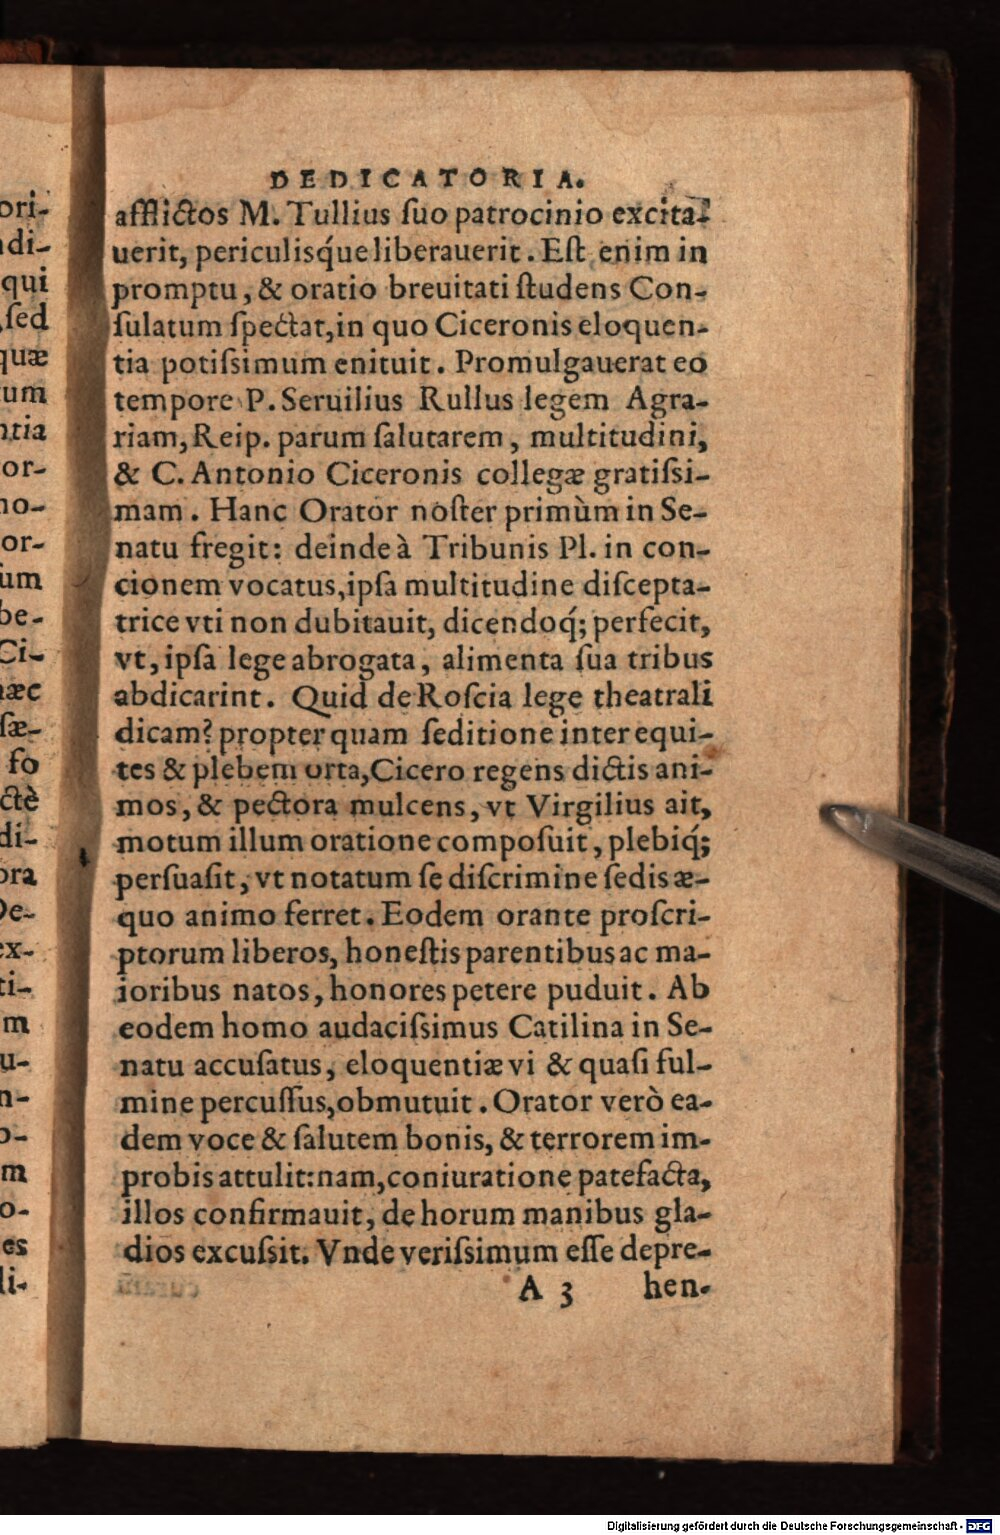 DEDICATORIA.
afflictos M. Tullius ſuo patrocinio excita-
uerit, periculiſq́ue liberauerit. Eſt enim in
promptu, & oratio breuitati ſtudens Con-
ſulatum ſpectat, in quo Ciceronis eloquen-
tia potiſsimum enituit. Promulgauerat eo
tempore P. Seruilius Rullus legem Agra-
riam, Reip. parum ſalutarem, multitudini,
& C. Antonio Ciceronis collegæ gratiſsi-
mam. Hanc Orator noſter primùm in Se-
natu fregit: deinde à Tribunis Pl. in con-
cionem vocatus, ipſa multitudine diſcepta-
trice vti non dubitauit, dicendoq́; perfecit,
vt, ipſa lege abrogata, alimenta ſua tribus
abdicarint. Quid de Roſcia lege theatrali
dicam? propter quam ſeditione inter equi-
tes & plebem orta, Cicero regens dictis ani-
mos, & pectora mulcens, vt Virgilius ait,
motum illum oratione compoſuit, plebiq́;
perſuaſit, vt notatum ſe diſcrimine ſedis æ-
quo animo ferret. Eodem orante proſcri-
ptorum liberos, honeſtis parentibus ac ma-
ioribus natos, honores petere puduit. Ab
eodem homo audaciſsimus Catilina in Se-
natu accuſatus, eloquentiæ vi & quaſi ful-
mine percuſſus, obmutuit. Orator verò ea-
dem voce & ſalutem bonis, & terrorem im-
probis attulit: nam, coniuratione patefacta,
illos confirmauit, de horum manibus gla-
dios excuſsit. Vnde veriſsimum eſſe depre-
A 3 hen-
ori-
di-
qui
ſed
quæ
um
ntia
or-
no-
or-
um
be-
Ci-
hæc
ſæ-
fo
ctè
di-
ora
De-
ex-
ti-
m
u-
n-
o-
m
o-
es
li-
Digitalisierung gefördert durch die Deutsche Forschungsgemeinschaft - DFG